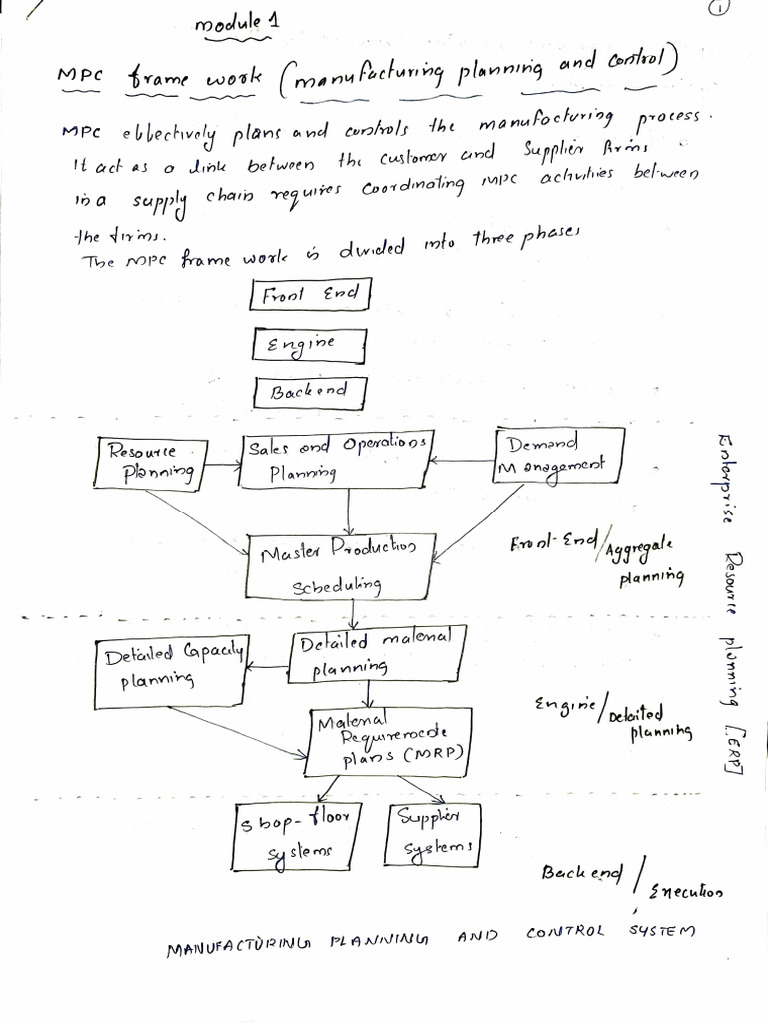 1
module 1
MPC frame work (manufacturing planning and control)
MPC effectively plans and controls the manufacturing process.
It act as a link between the customer and supplier firms
in a supply chain requires coordinating MPC activities between
the firms.
The MPC frame work is divided into three phases
Front End
Engine
Backend
Resource Planning
Sales and Operations Planning
Demand Management
Master Production Scheduling
Front-End/Aggregate planning
Detailed Capacity planning
Detailed material planning
Material Requiremede plans (MRP)
Engine/Detailed planning
Shop-floor systems
Supplier systems
Backend/Execution
Enterprise Resource planning [ERP]
MANUFACTURING PLANNING AND CONTROL SYSTEM